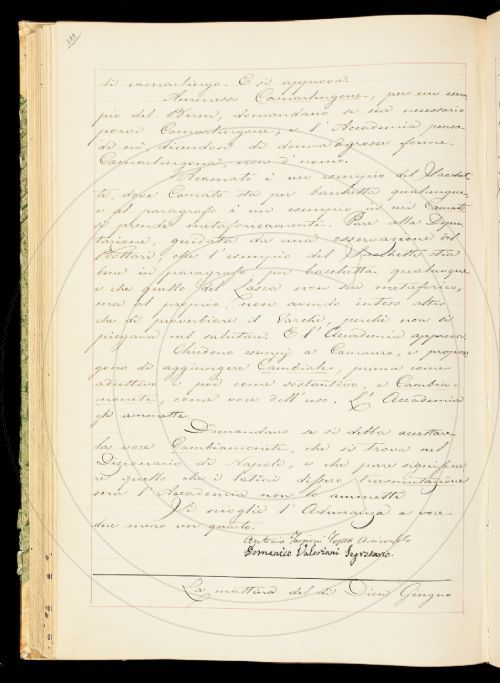 di camarlingo. E si approva.
Ammesso Camarlingone, per un esem-
pio del Berni, domandano se sia necessario
porvi Camarlingona, e l'Accademia
ciò dicendosi di donna grosse forme
Camarlingona, non d'uomo.
è un esempio del Sacchet-
ti, dove Camato sta per bacchetta qualunque,
e al paragrafo è un esempio in cui Camato
si prende metaforicamente. Pare alla Depu-
tazione, guidata da una osservazione del
Bottari, che l'esempio del Sacchetti stia
bene in paragrafo per bacchetta qualunque
e che quello del Lasca non sia metaforico,
ma al proprio, non avendo inteso altro
che di proverbiare il Varchi, perchè non si
piegava nel salutare. E l'Accademia approva.
Chiedono esempj a Camauro, e propon-
gono di aggiungere Cambiale, prima come
adiettivo e poi come sostantivo, e Cambia-
monete, come voce dell'uso. L'Accademia
gli ammette.
Domandano se si debba accettare
la voce Cambiamonete, che si trova nel
Dizionario di Napoli, e che pare significa-
re quello che i latini dissero
ma l'Accademia non lo ammette
Si scioglie l'Adunanza a ore
due meno un quarto.
Antonio
Domenico Valeriani Segretario.
La mattina del dì Dieci Giugno